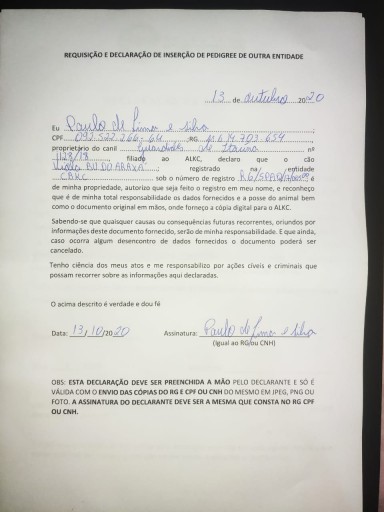 REQUISIÇÃO E DECLARAÇÃO DE INSERÇÃO DE PEDIGREE DE OUTRA ENTIDADE
13 de outubro 2020
Eu Paulo de Lima e Silva
CPF RG
proprietário do canil nº
1128/18 filiado ao ALKC, declaro que o cão
BU DO ARAXÁ registrado na entidade
CBKC sob o número de registro é
de minha propriedade, autorizo que seja feito o registro em meu nome, e reconheço
que é de minha total responsabilidade os dados fornecidos e a posse do animal bem
como o documento original em mãos, onde forneço a cópia digital para o ALKC.
Sabendo-se que quaisquer causas ou consequências futuras recorrentes, oriundos por
informações deste documento fornecido, serão de minha responsabilidade. E que ainda,
caso ocorra algum desencontro de dados fornecidos o documento poderá ser
cancelado.
Tenho ciência dos meus atos e me responsabilizo por ações cíveis e criminais que
possam recorrer sobre as informações aqui declaradas.
O acima descrito é verdade e dou fé
Data: 13/10/2020 Assinatura: Paulo de Lima e Silva
(Igual ao RG ou CNH)
OBS: ESTA DECLARAÇÃO DEVE SER PREENCHIDA A MÃO PELO DECLARANTE E SÓ É
VÁLIDA COM O ENVIO DAS CÓPIAS DO RG E CPF OU CNH DO MESMO EM JPEG, PNG OU
FOTO. A ASSINATURA DO DECLARANTE DEVE SER A MESMA QUE CONSTA NO RG CPF
OU CNH.